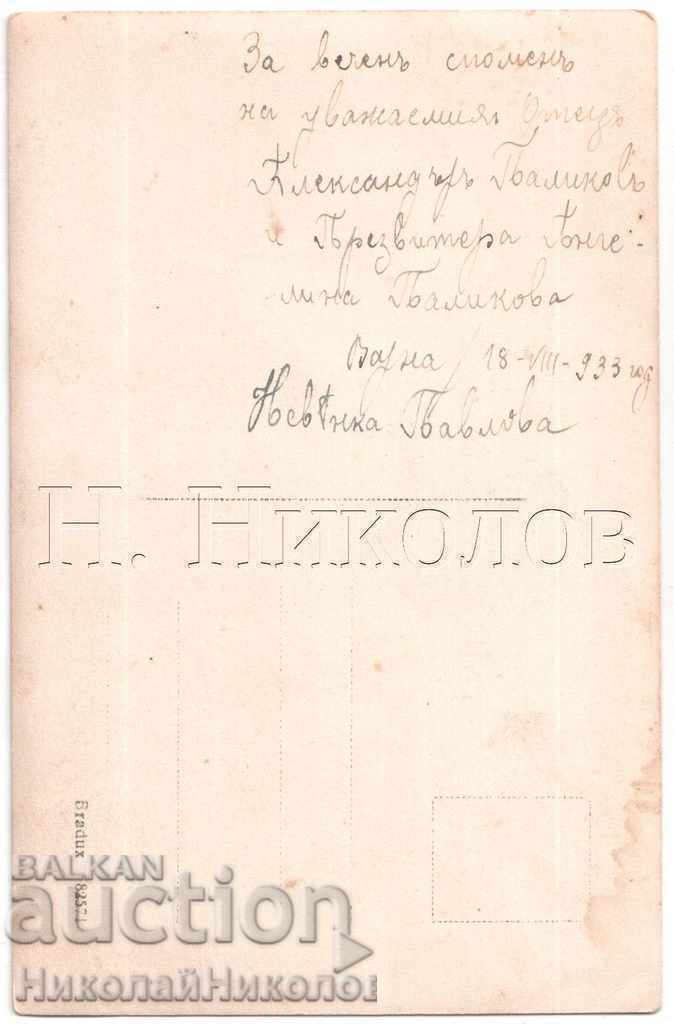 За веченъ споменъ
на уважаемия Отецъ
Александъръ Паликовъ
и Презвитера Анге-
лина Паликова
Варна / 18-VIII-933 год
Невѣнка Павлова
Н. Николов
Bradux
BALKAN
auction
НиколайНиколов